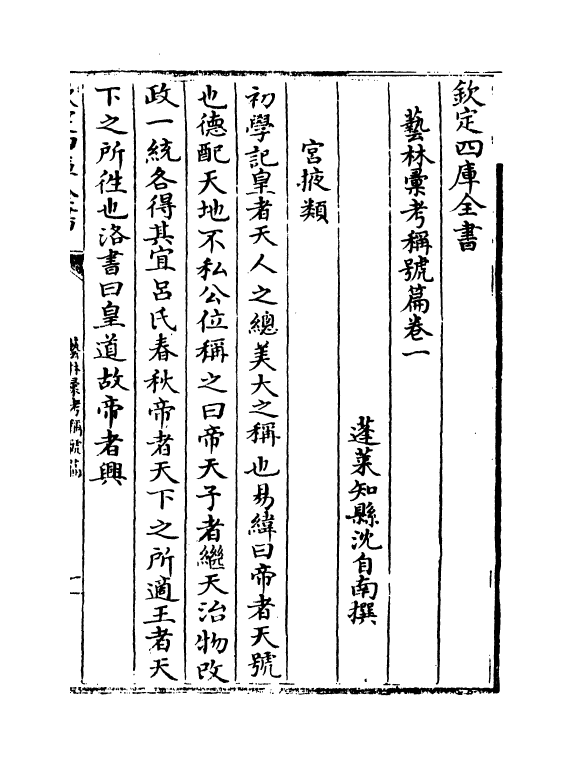 欽定四庫全書
藝林彚考稱號篇卷一
蓬萊知縣沈自南撰
宮掖類
初學記皇者天人之總美大之稱也易緯曰帝者天號
也德配天地不私公位稱之曰帝天子者繼天治物改
政一統各得其宜呂氏春秋帝者天下之所適王者天
下之所徃也洛書曰皇道故帝者興
藝林彚考稱號篇
一